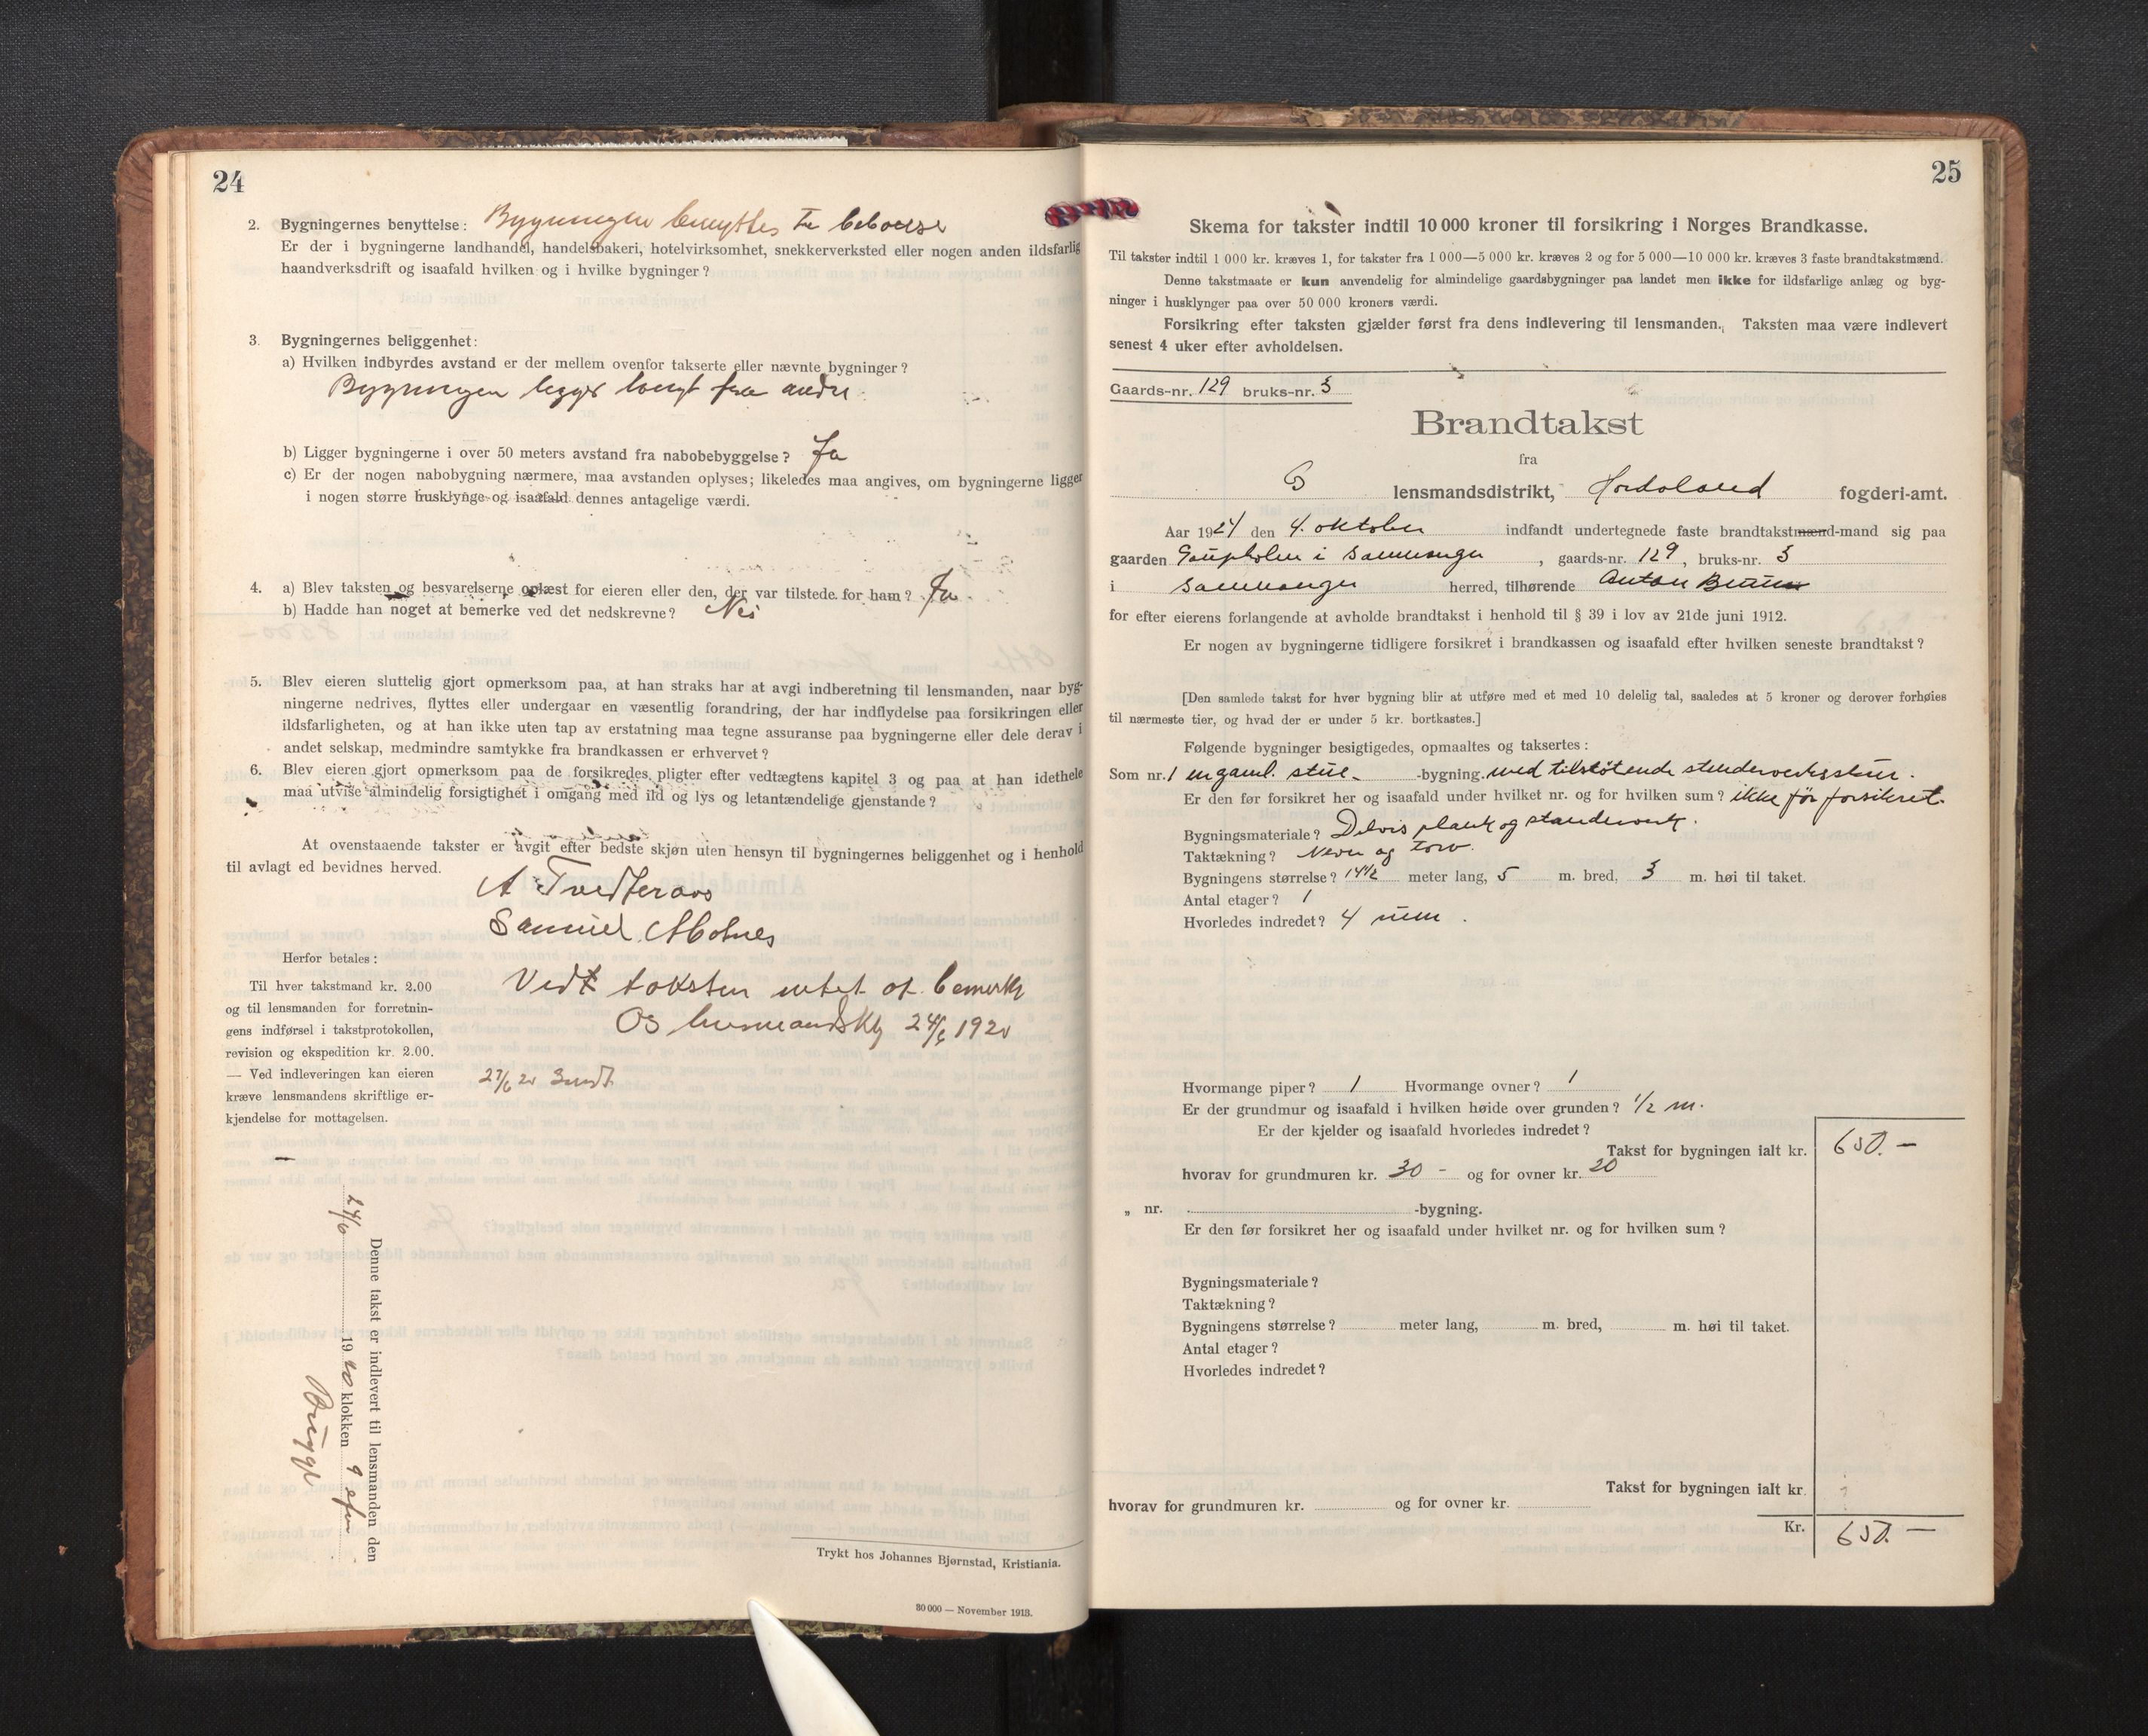 24
2. Bygningernes benyttelse: Bygningen benyttes til beboelse
Er der i bygningerne landhandel, handelsbakeri, hotelvirksomhet, snekkerverksted eller nogen anden ildsfarlig
haandverksdrift og isaafald hvilken og i hvilke bygninger?
3. Bygningernes beliggenhet:
a) Hvilken indbyrdes avstand er der mellem ovenfor takserte eller nævnte bygninger?
Bygningen ligger langt fra andre.
b) Ligger bygningerne i over 50 meters avstand fra nabobebyggelse? Ja
c) Er der nogen nabobygning nærmere, maa avstanden oplyses; likeledes maa angives, om bygningerne ligger
i nogen større husklynge og isaafald dennes antagelige værdi.
4. a) Blev taksten og besvarelserne oplæst for eieren eller den, der var tilstede for ham? Ja
b) Hadde han noget at bemerke ved det nedskrevne? Nei
5. Blev eieren sluttelig gjort opmerksom paa, at han straks har at avgi indberetning til lensmanden, naar byg-
ningerne nedrives, flyttes eller undergaar en væsentlig forandring, der har indflydelse paa forsikringen eller
ildsfarligheten, og at han ikke uten tap av erstatning maa tegne assuranse paa bygningerne eller dele derav i
andet selskap, medmindre samtykke fra brandkassen er erhvervet?
6. Blev eieren gjort opmerksom paa de forsikredes pligter efter vedtægtens kapitel 3 og paa at han idethele
maa utvise almindelig forsigtighet i omgang med ild og lys og letantændelige gjenstande?
At ovenstaaende takster er avgit efter bedste skjøn uten hensyn til bygningernes beliggenhet og i henhold
til avlagt ed bevidnes herved.
A Tvedteraas
Samuel
Herfor betales:
Til hver takstmand kr. 2.00
og til lensmanden for forretnin-
gens indførsel i takstprotokollen,
revision og ekspedition kr. 2.00.
— Ved indleveringen kan eieren
kræve lensmandens skriftlige er-
kjendelse for mottagelsen.
Vedt taksten intet at bemerke
Os lensmandskt 24/6 1920
27/6 20
Denne takst er indlevert til lensmanden den
24/6 1920 klokken 9 efm
Trykt hos Johannes Bjørnstad, Kristiania.
30 000 — November 1913.
25
Skema for takster indtil 10 000 kroner til forsikring i Norges Brandkasse.
Til takster indtil 1 000 kr. kræves 1, for takster fra 1 000—5 000 kr. kræves 2 og for 5 000—10 000 kr. kræves 3 faste brandtakstmænd.
Denne takstmaate er kun anvendelig for almindelige gaardsbygninger paa landet men ikke for ildsfarlige anlæg og byg-
ninger i husklynger paa over 50 000 kroners værdi.
Forsikring efter taksten gjælder først fra dens indlevering til lensmanden. Taksten maa være indlevert
senest 4 uker efter avholdelsen.
Gaards-nr. 129 bruks-nr. 3
Brandtakst
fra
Os lensmandsdistrikt, Hordaland fogderi-amt.
Aar 1921 den 4. oktober indfandt undertegnede faste brandtakstmænd-mand sig paa
gaarden Gaupholm i Samnanger, gaards-nr. 129, bruks-nr. 3
i Samnanger herred, tilhørende Anton
for efter eierens forlangende at avholde brandtakst i henhold til § 39 i lov av 21de juni 1912.
Er nogen av bygningerne tidligere forsikret i brandkassen og isaafald efter hvilken seneste brandtakst?
[Den samlede takst for hver bygning blir at utføre med et med 10 delelig tal, saaledes at 5 kroner og derover forhøies
til nærmeste tier, og hvad der er under 5 kr. bortkastes.]
Følgende bygninger besigtigedes, opmaaltes og taksertes:
Som nr. 1 en gaml. stue-bygning. med tilstøtende stenderverksskur.
Er den før forsikret her og isaafald under hvilket nr. og for hvilken sum? ikke før forsikret.
Bygningsmateriale? Delvis plank og standerverk.
Taktækning? Never og torv.
Bygningens størrelse? 14½ meter lang, 5 m. bred, 3 m. høi til taket.
Antal etager? 1
Hvorledes indredet? 4 rum.
Hvormange piper? 1 Hvormange ovner? 1
Er der grundmur og isaafald i hvilken høide over grunden? ½ m.
Er der kjelder og isaafald hvorledes indredet?
Takst for bygningen ialt kr. 650.—
hvorav for grundmuren kr. 30 - og for ovner kr. 20
„ nr. -bygning.
Er den før forsikret her og isaafald under hvilket nr. og for hvilken sum?
Bygningsmateriale?
Taktækning?
Bygningens størrelse? meter lang, m. bred, m. høi til taket.
Antal etager?
Hvorledes indredet?
Takst for bygningen ialt kr.
hvorav for grundmuren kr. og for ovner kr.
Kr. 650.—